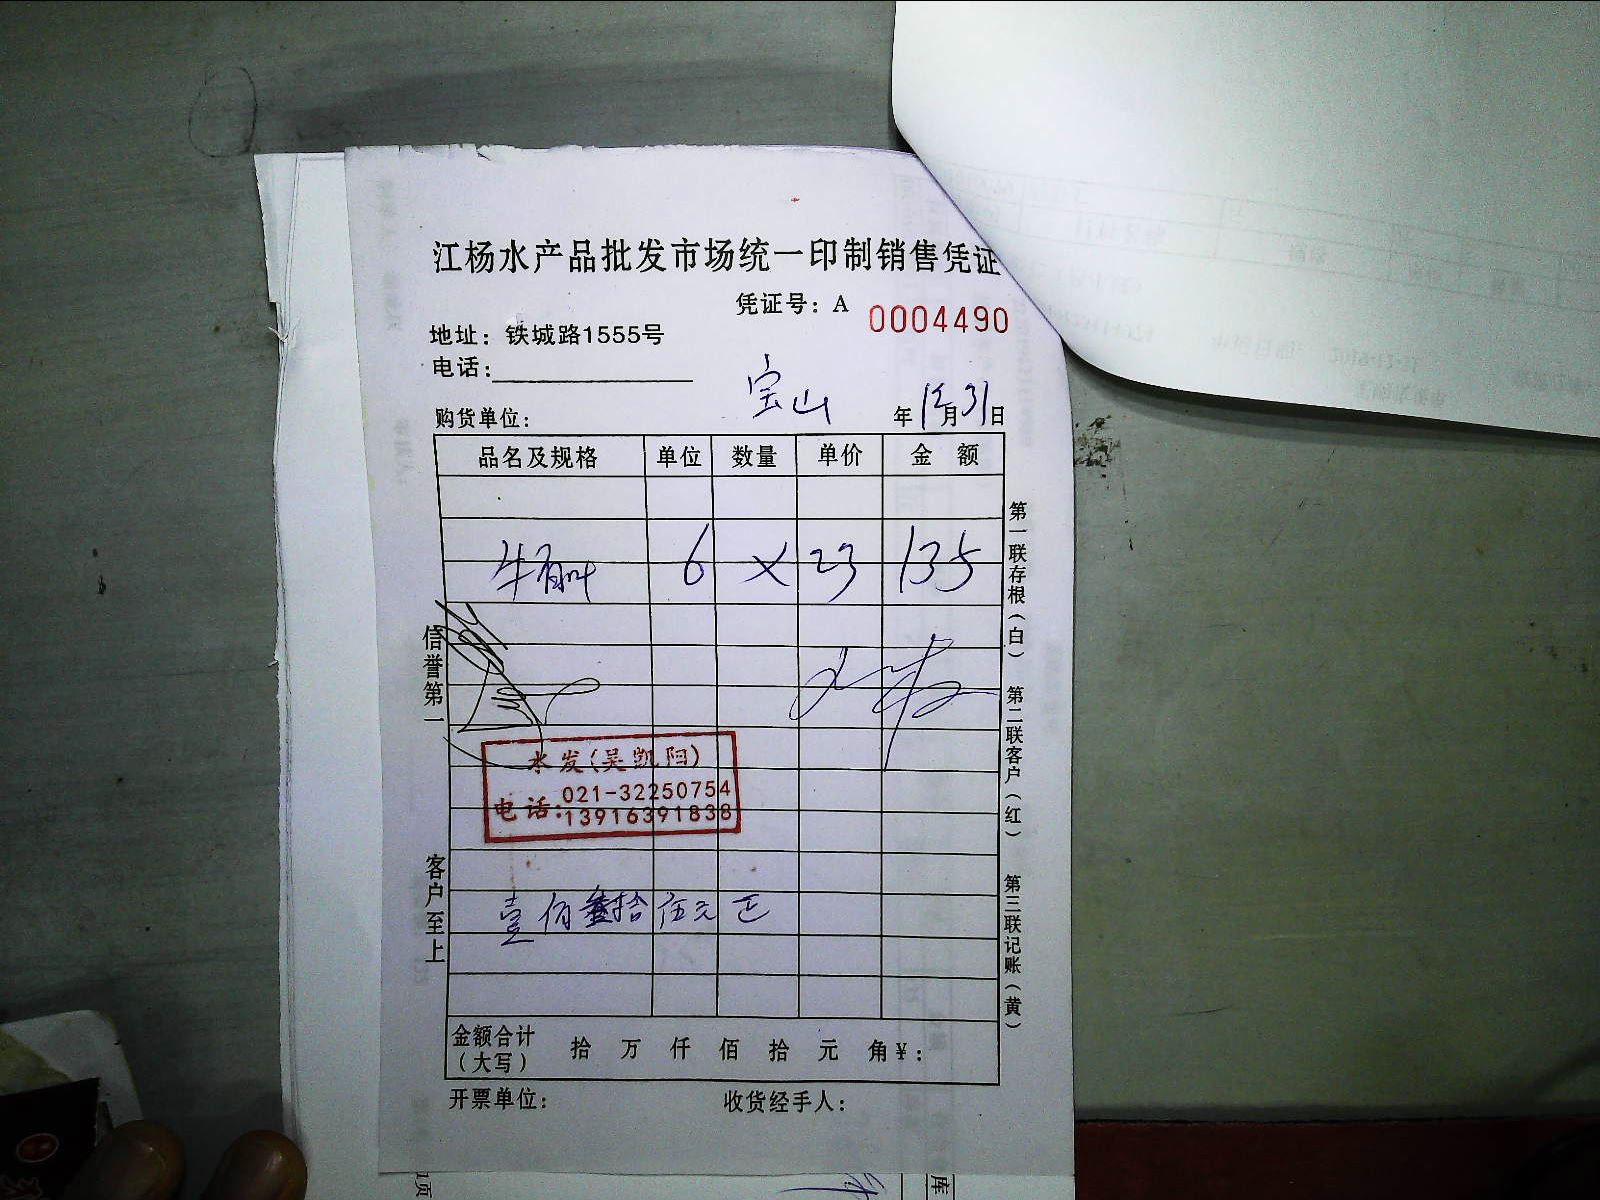 江杨水产品批发市场统一印制销售凭证
凭证号：A 0004490
地址：铁城路1555号
电话：
购货单位： 宝山 年 12月31日
品名及规格 单位 数量 单价 金 额
牛 6 × 23 135
信誉第一
水发(吴凯阳)
电话:021-32250754
13916391838
客户至上
壹佰叁拾伍元正
金额合计（大写） 拾 万 仟 佰 拾 元 角 ¥：
开票单位： 收货经手人：
第一联存根（白） 第二联客户（红） 第三联记账（黄）
页
库